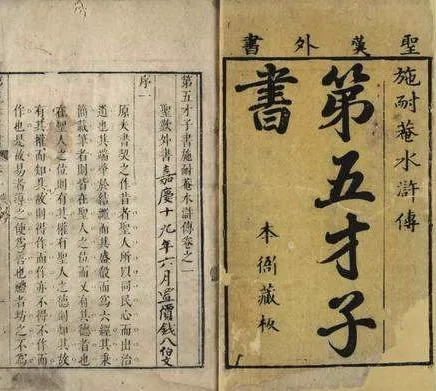 聖嘆外書
施耐菴水滸傳
第五才子
書
本衙藏板
第五才子書施耐菴水滸傳卷之一
聖歎外書 嘉慶十九年六月置價錢八佰文
序一
原夫書契之作昔者聖人所以同民心而出治
道也其端肇於結繩而其盛殽而為六經其秉
簡載筆者則皆在聖人之位而又有其德者也
在聖人之位則有其權有聖人之德則知其故
有其權而知其故則得作而作亦不得不作而
作也是故易者導之使為善也禮者坊之不為